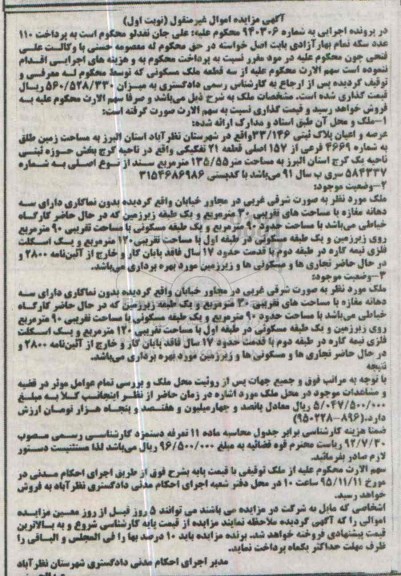 آگهی مزایده اموال غیرمنقول (نوبت اول)
در پرونده اجرایی به شماره ۹۴۰۳۰۶ محکوم علیه: علی جان تفدلو محکوم است به پرداخت ۱۱۰
عدد سکه تمام بهار آزادی بابت اصل خواسته در حق محکوم له معصومه حسنی با وکالت علی
فتحی چون محکوم علیه در مود مقرر نسبت به پرداخت محکوم به و هزینه های اجرایی اقدام
ننموده است سهم الارث محکوم علیه از سه قطعه ملک مسکونی که توسط محکوم له معرفی و
توقیف گردیده پس از ارجاع به کارشناس رسمی دادگستری به میزان ۵۶۰/۵۲۸/۳۳۰ ریال
قیمت گذاری شده است. مشخصات ملک به شرح ذیل می‌باشد و صرفا سهم الارث محکوم علیه به
فروش خواهد رسید و قیمت گذاری نسبت به سهم الارث صورت گرفته است:
۱-ملک و محل آن طبق اسناد و مدارک ارائه شده:
عرصه و اعیان پلاک ثبتی ۳۳/۱۴۶ واقع در شهرستان نظرآباد استان البرز به مساحت زمین طلق
به شماره ۴۶۶۹ فرعی از ۱۵۷ اصلی قطعه ۲۱ تفکیکی واقع در ناحیه کرج بخش حوزه ثبتی
ناحیه یک کرج استان البرز به مساحت متر ۱۳۵/۵۵ مترمربع سند از نوع اصلی به شماره
۵۸۴۳۳۷ سری ب سال ۹۱ می‌باشد با کدپستی ۳۱۵۴۶۸۶۹۸۶
۲-وضعیت موجود:
ملک مورد نظر به صورت شرقی غربی در مجاور خیابان واقع گردیده بدون نماکاری دارای سه
دهانه مغازه با مساحت های تقریبی ۳۰ مترمربع و یک طبقه زیرزمین که در حال حاضر کارگاه
خیاطی می‌باشد با مساحت حدود ۹۰ مترمربع و یک طبقه مسکونی با مساحت تقریبی ۹۰ مترمربع
روی زیرزمین و یک طبقه مسکونی در طبقه اول با مساحت تقریبی ۱۲۰ مترمربع و یک اسکلت
فلزی نیمه کاره در طبقه دوم با قدمت حدود ۱۷ سال فاقد پایان کار و خارج از آئین‌نامه ۲۸۰۰ و
در حال حاضر تجاری ها و مسکونی ها و زیرزمین مورد بهره برداری می‌باشد.
۳-وضعیت موجود:
ملک مورد نظر به صورت شرقی غربی در مجاور خیابان واقع گردیده بدون نماکاری دارای سه
دهانه مغازه با مساحت های تقریبی ۳۰ مترمربع و یک طبقه زیرزمین که در حال حاضر کارگاه
خیاطی می‌باشد با مساحت حدود ۹۰ مترمربع و یک طبقه مسکونی با مساحت تقریبی ۹۰ مترمربع
روی زیرزمین و یک طبقه مسکونی در طبقه اول با مساحت تقریبی ۱۲۰ مترمربع و یک اسکلت
فلزی نیمه کاره در طبقه دوم با قدمت حدود ۱۷ سال فاقد پایان کار و خارج از آئین‌نامه ۲۸۰۰ و
در حال حاضر تجاری ها و مسکونی ها و زیرزمین مورد بهره برداری می‌باشد.
نتیجه
با توجه به مراتب فوق و جمیع جهات پس از روئیت محل ملک و بررسی تمام عوامل موثر در قضیه
و مشاهدات موجود در محل ملک مورد اشاره در زمان حاضر از نظر اینجانب کلا به مبلغ
۵/۰۴۷/۵۰۰/۰۰۰ ریال معادل پانصد و چهارمیلیون و هفتصد و پنجاه هزار تومان ارزش
دارد.(۸۹۶-۹۵۰۲۲۸)
ضمنا هزینه کارشناسی برابر جدول محاسبه ماده ۱۱ تعرفه دستمزد کارشناسی رسمی مصوب
۹۲/۷/۳۰ ریاست محترم قوه قضائیه به مبلغ ۹۶/۵۰۰/۰۰۰ ریال می‌باشد لذا مستثنیست دستور
لازم صادر بفرمائید.
سهم الارث محکوم علیه از ملک توقیفی با قیمت پایه بشرح فوق از طریق اجرای احکام مدنی در
مورخ ۹۵/۱۱/۱۱ ساعت ۱۰ در محل دفتر شعبه اجرای احکام مدنی دادگستری نظرآباد به فروش
خواهد رسید.
اشخاصی که مایل به شرکت در مزایده می باشند می توانند ۵ روز قبل از روز معین مزایده
اموالی را که آگهی گردیده ملاحظه نمایند مزایده از قیمت پایه کارشناسی شروع و به بالاترین
قیمت پیشنهادی فروخته خواهد شد. برنده مزایده باید ۱۰ درصد بها را فی المجلس و الباقی را
ظرف مهلت حداکثر یکماه پرداخت نماید.
مدیر اجرای احکام مدنی دادگستری شهرستان نظرآباد